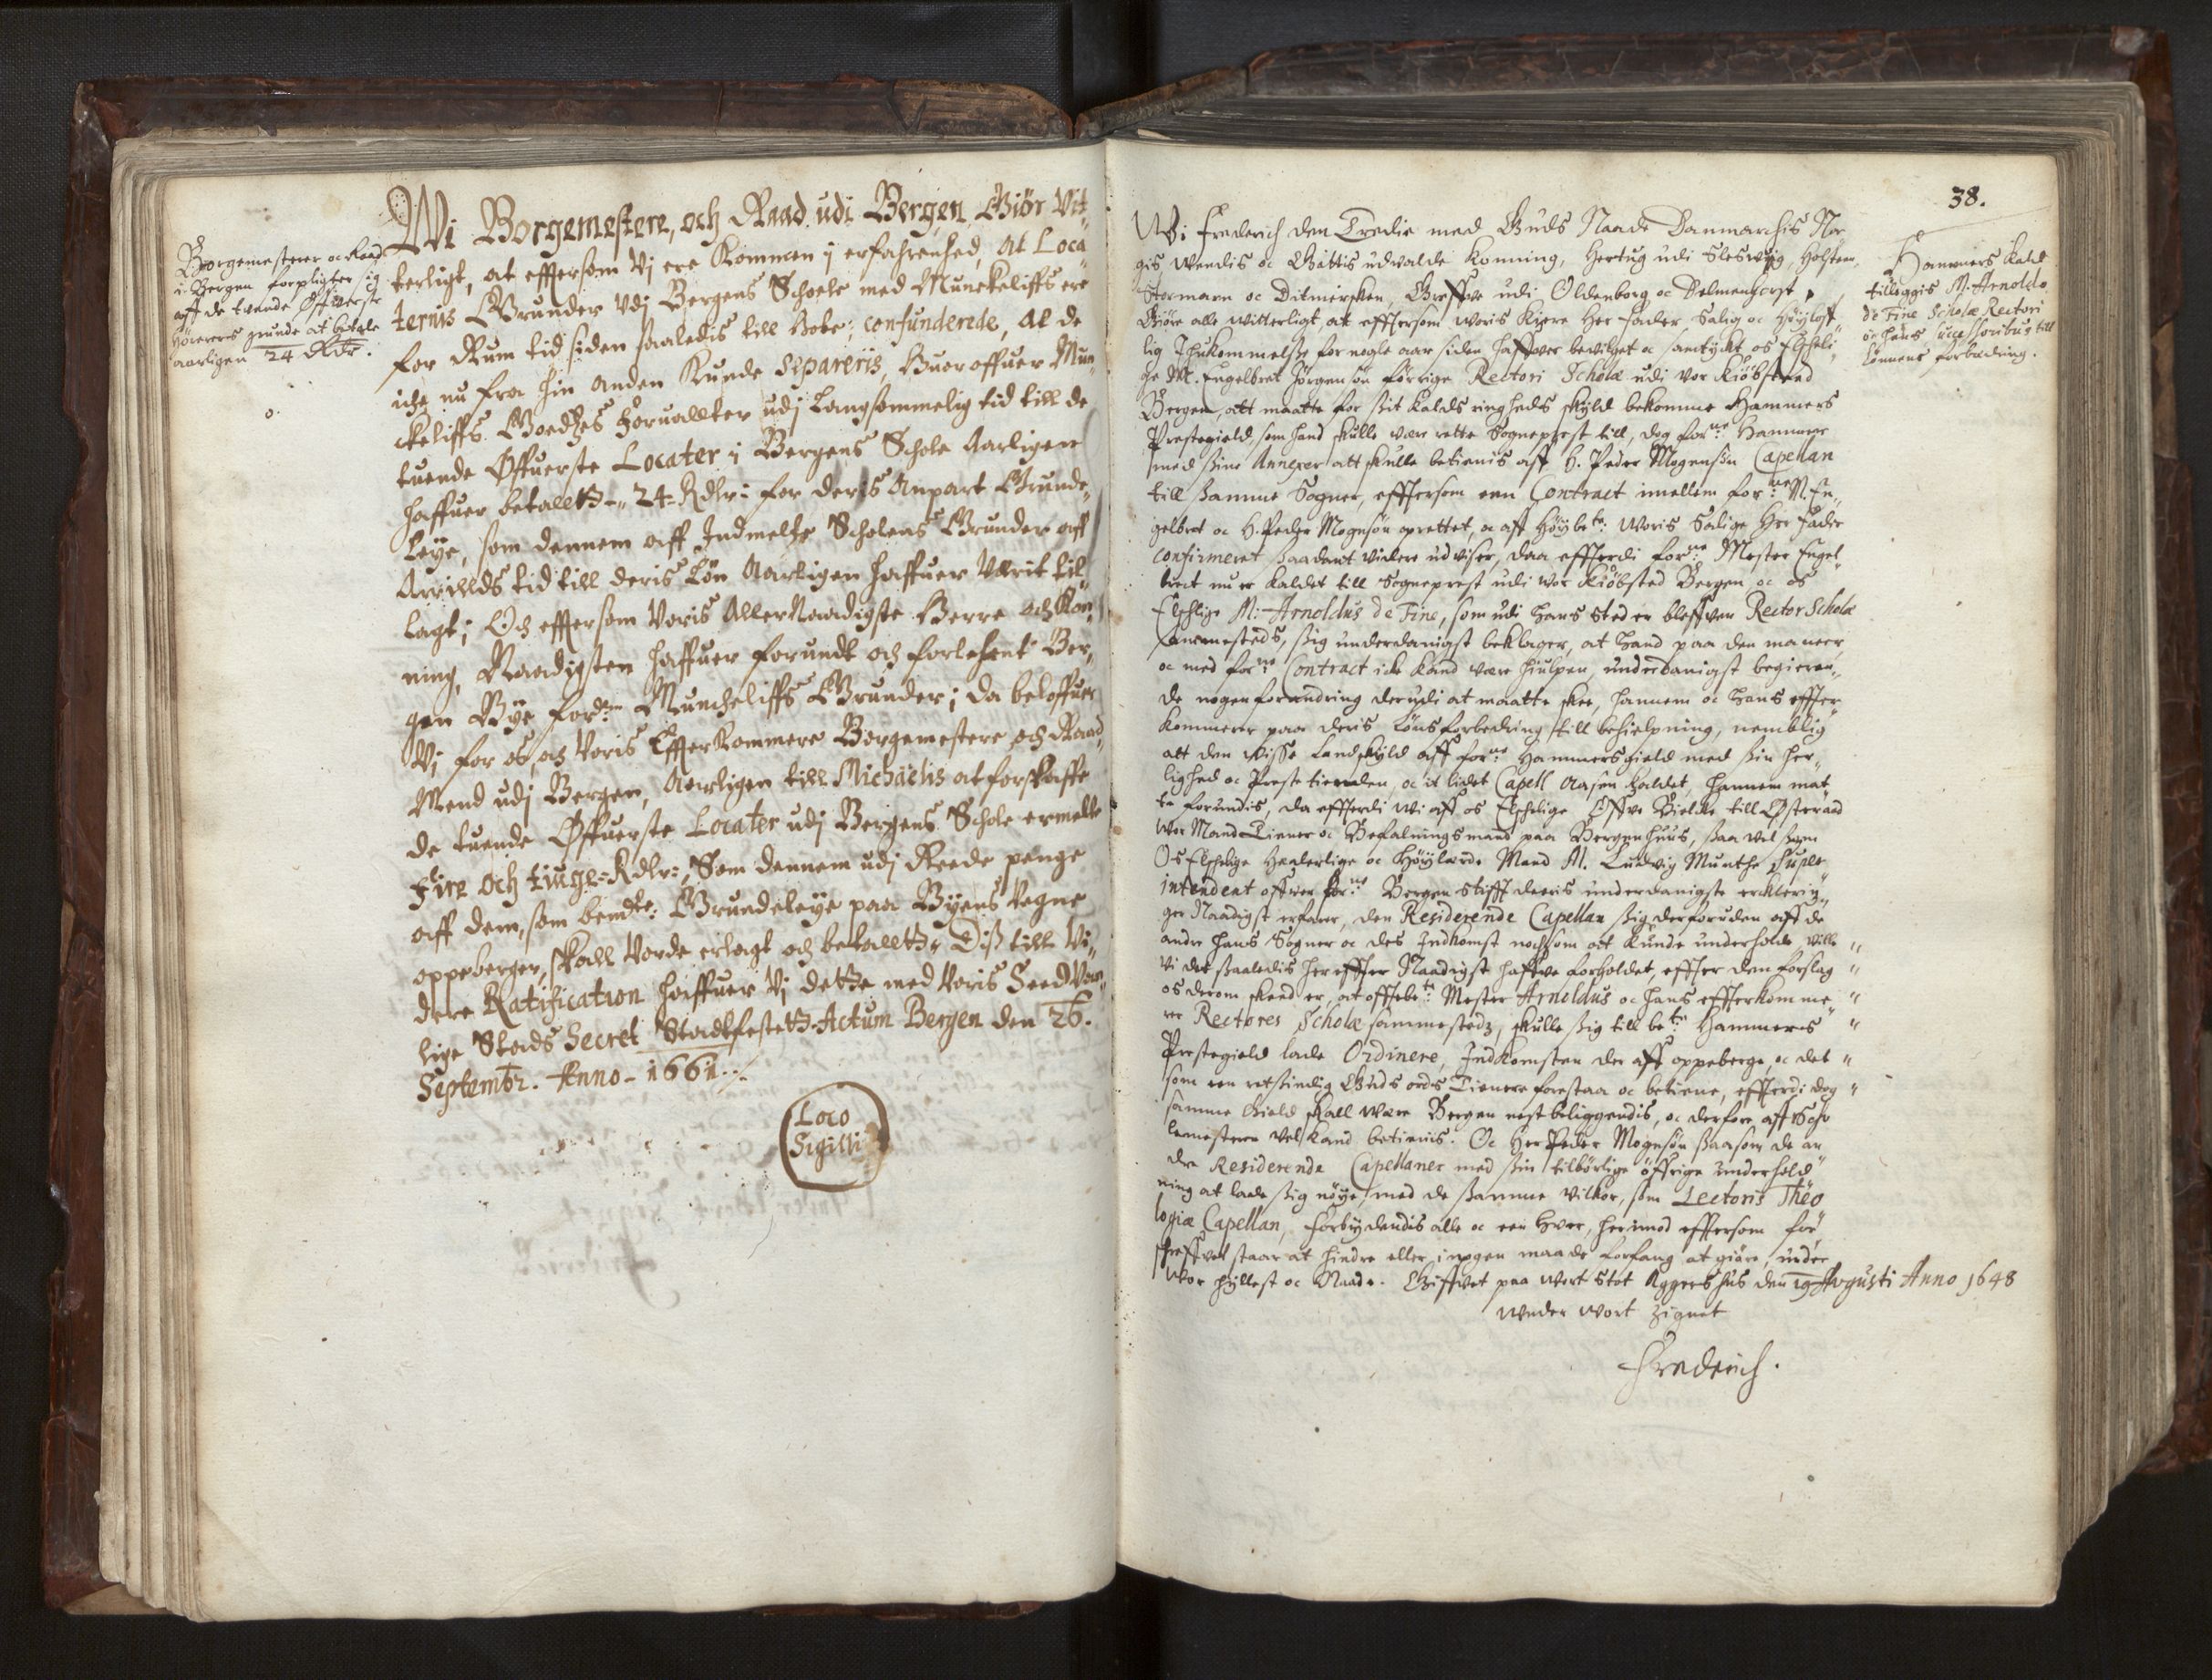 Borgemestere oc Raad
i Bergen forpligter sig
aff de tvende Øffverste
Hørerers grunde at betale
aarligen 24 Rdlr.
Wi Borgemestere, och Raad udi Bergen Giör Vit„
terligt, at effterson Vj ere Kommen i erfahrenhed, At Loca„
ternis Grunder Udj Bergens Schoele med Munckeliffs ere
for Rum tid siden saaledis till Hobe, confunderede, At de
icke nu fra hin anden Kunde Separeris, Huor offuer Mun„
ckeliffs Goedzes Foruallter udj Langsommelig tid till de
tuende Øffuerste Locater i Bergens Schole Aarligen
haffuer betallt 24 Rdlr: for deris Anpart Grunde„
Leye, som dennem aff Indmelte Scholens Grunder aff
Arrilds tid till deris Løn Aarligen haffuer Værit til„
lagt; Och effterson Voris AllerNaadigste Herre och Kon„
ning, Naadigsten haffuer forundt och forlehent Ber„
gen Bye fordne Munckeliffs Grunder; da beloffuer
Vj for os, och Voris EffterKommere Borgemestere och Raad„
Mend udj Bergen, Aarligen till Michaëlis at forskaffe
de tuende Øffuerste Locater udj Bergens Schole ermelte
Fire och tiuge Rdlr:, Som dennem udj Reede penge
aff dem, som bemdte: Grundeleye paa Byens Vegne
oppeberger, skall Vorde erlagt och betallt. Diss till Vi„
dere Ratification haffuer Vj dette med Voris Seed Van„
lige Stads Secret Stadfestet. Actum Bergen den 26.
Septembr. Anno 1661.
Loco
Sigilli
38.
Hammers Kald
tilleggis M. Arnoldo
de Fine Scholæ Rectori
oc hans successoribus till
Lønnens forbedring.
Wi Frederich den Tredie med Guds Naade Danmarchis Nor
gis Wendis oc Gottis udvalde Konning, Hertug udi Sleswiig, Holsten,
Stormarn oc Ditmersken, Greffve udi Oldenborg oc Delmenhorst,
Giøre alle witterligt, at effterson woris Kiere Her Fader, Salig oc Høylof
lig Ihukommelse for nogle aar siden haffver bevilget oc samtyckt os Elscheli
ge M. Engelbret Jørgensøn forrige Rectori Scholæ udi vor Kiøbsted
Bergen, att maatte for sit Kalds ringheds skyld bekomme Hammers
Prestegield, som hand skulle være rette Sogneprest till, dog forne Hammer
med sine Annexer att skulle betienis aff H. Peder Mogensøn Capellan
till samme Sogner, effterson een Contract imellem forne M. En„
gelbret oc H. Peder Mogensøn oprettet, oc aff Høybete: Woris Salige Her Fader
confirmeret saadant videre udviser, daa effterdi forne Mester Engel„
bret nu er kaldet till Sogneprest udi vor Kiøbsted Bergen oc os
Elschlige M: Arnoldus de Fine, som udi hans sted er bleffven Rector Scholæ
sammesteds, sig underdanigst beklager, at hand paa den maneer
oc med forne Contract icke Kand være hiulpen, underdanigst begieren„
de nogen forandring derudi at maatte skee, hannem oc hans effter„
kommere paa deris Lønsforbedring till behielpning, nemblig
att den Visse Landskyld aff forne Hammersgield med sin her„
lighed oc Preste tienden, oc it lidet Capell Aasen kaldet, hannem mat
te forundis, da effterdi wi aff os Elschelige Offve Bielcke till Østeraad
Wor Mand Tienner oc Befalningsmand paa Bergenhuus, saa vel som
Os Elschelige Hæderlige oc Høylærde Mand M. Ludvig Munthe Super
intendent offver forne Bergen stifft deris underdanigste erklering„
ger Naadigst erfarer, den Residerende Capellan sig derforuden aff de
andre hans Sogner oc des Indkomst nochsom at kunde underholde, ville
Vi det saaledis hereffter Naadigst haffve forholdet, effter den forslag
os derom skeed er, at offtebete: Mester Arnoldus oc hans effterkomme
re Rectores Scholæ sammesteds, skulle sig till bete: Hammers
Prestegield lade Ordinere, Indkomsten der aff oppeberge, oc det
som een retsindig Guds ords Tienere forestaa oc betiene, effterdi dog
samme Gield skall være Bergen nest beliggendis, oc derfore aff Scho
lemesteren vel Kand betienis. Oc Her Peder Mogensøn saasom de an
dre Residerende Capellaner med sin tilbørlige øffrige underhold
ning at lade sig nøye, med de samme vilkor, som Lectoris Theo
logiæ Capellan, Forbydendis alle oc een hver, herimod effterson for
schreffvet staar at hindre eller i nogen maade forfang at giøre, under
Wor hyllest oc Naade. Giffvet paa wort Slot Aggershus den 19 Avgusti Anno 1648
Under Wort Zignet
Frederich.